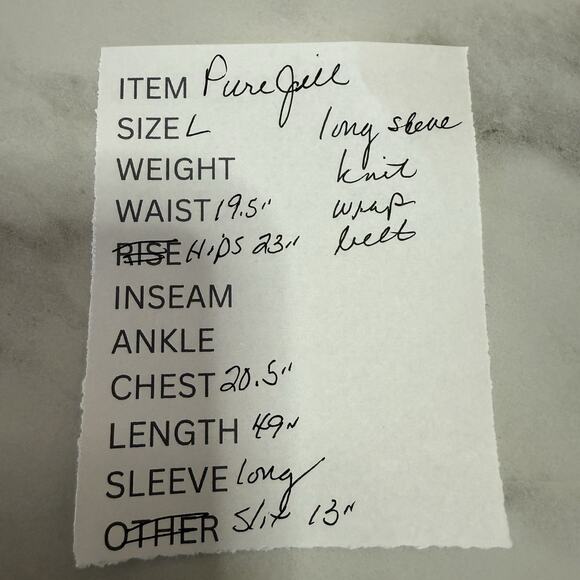 ITEM Pure Jill
SIZE L long sleeve
WEIGHT knit
WAIST 19.5" wrap
RISE Hips 23" belt
INSEAM
ANKLE
CHEST 20.5"
LENGTH 49"
SLEEVE long
OTHER Slit 13"